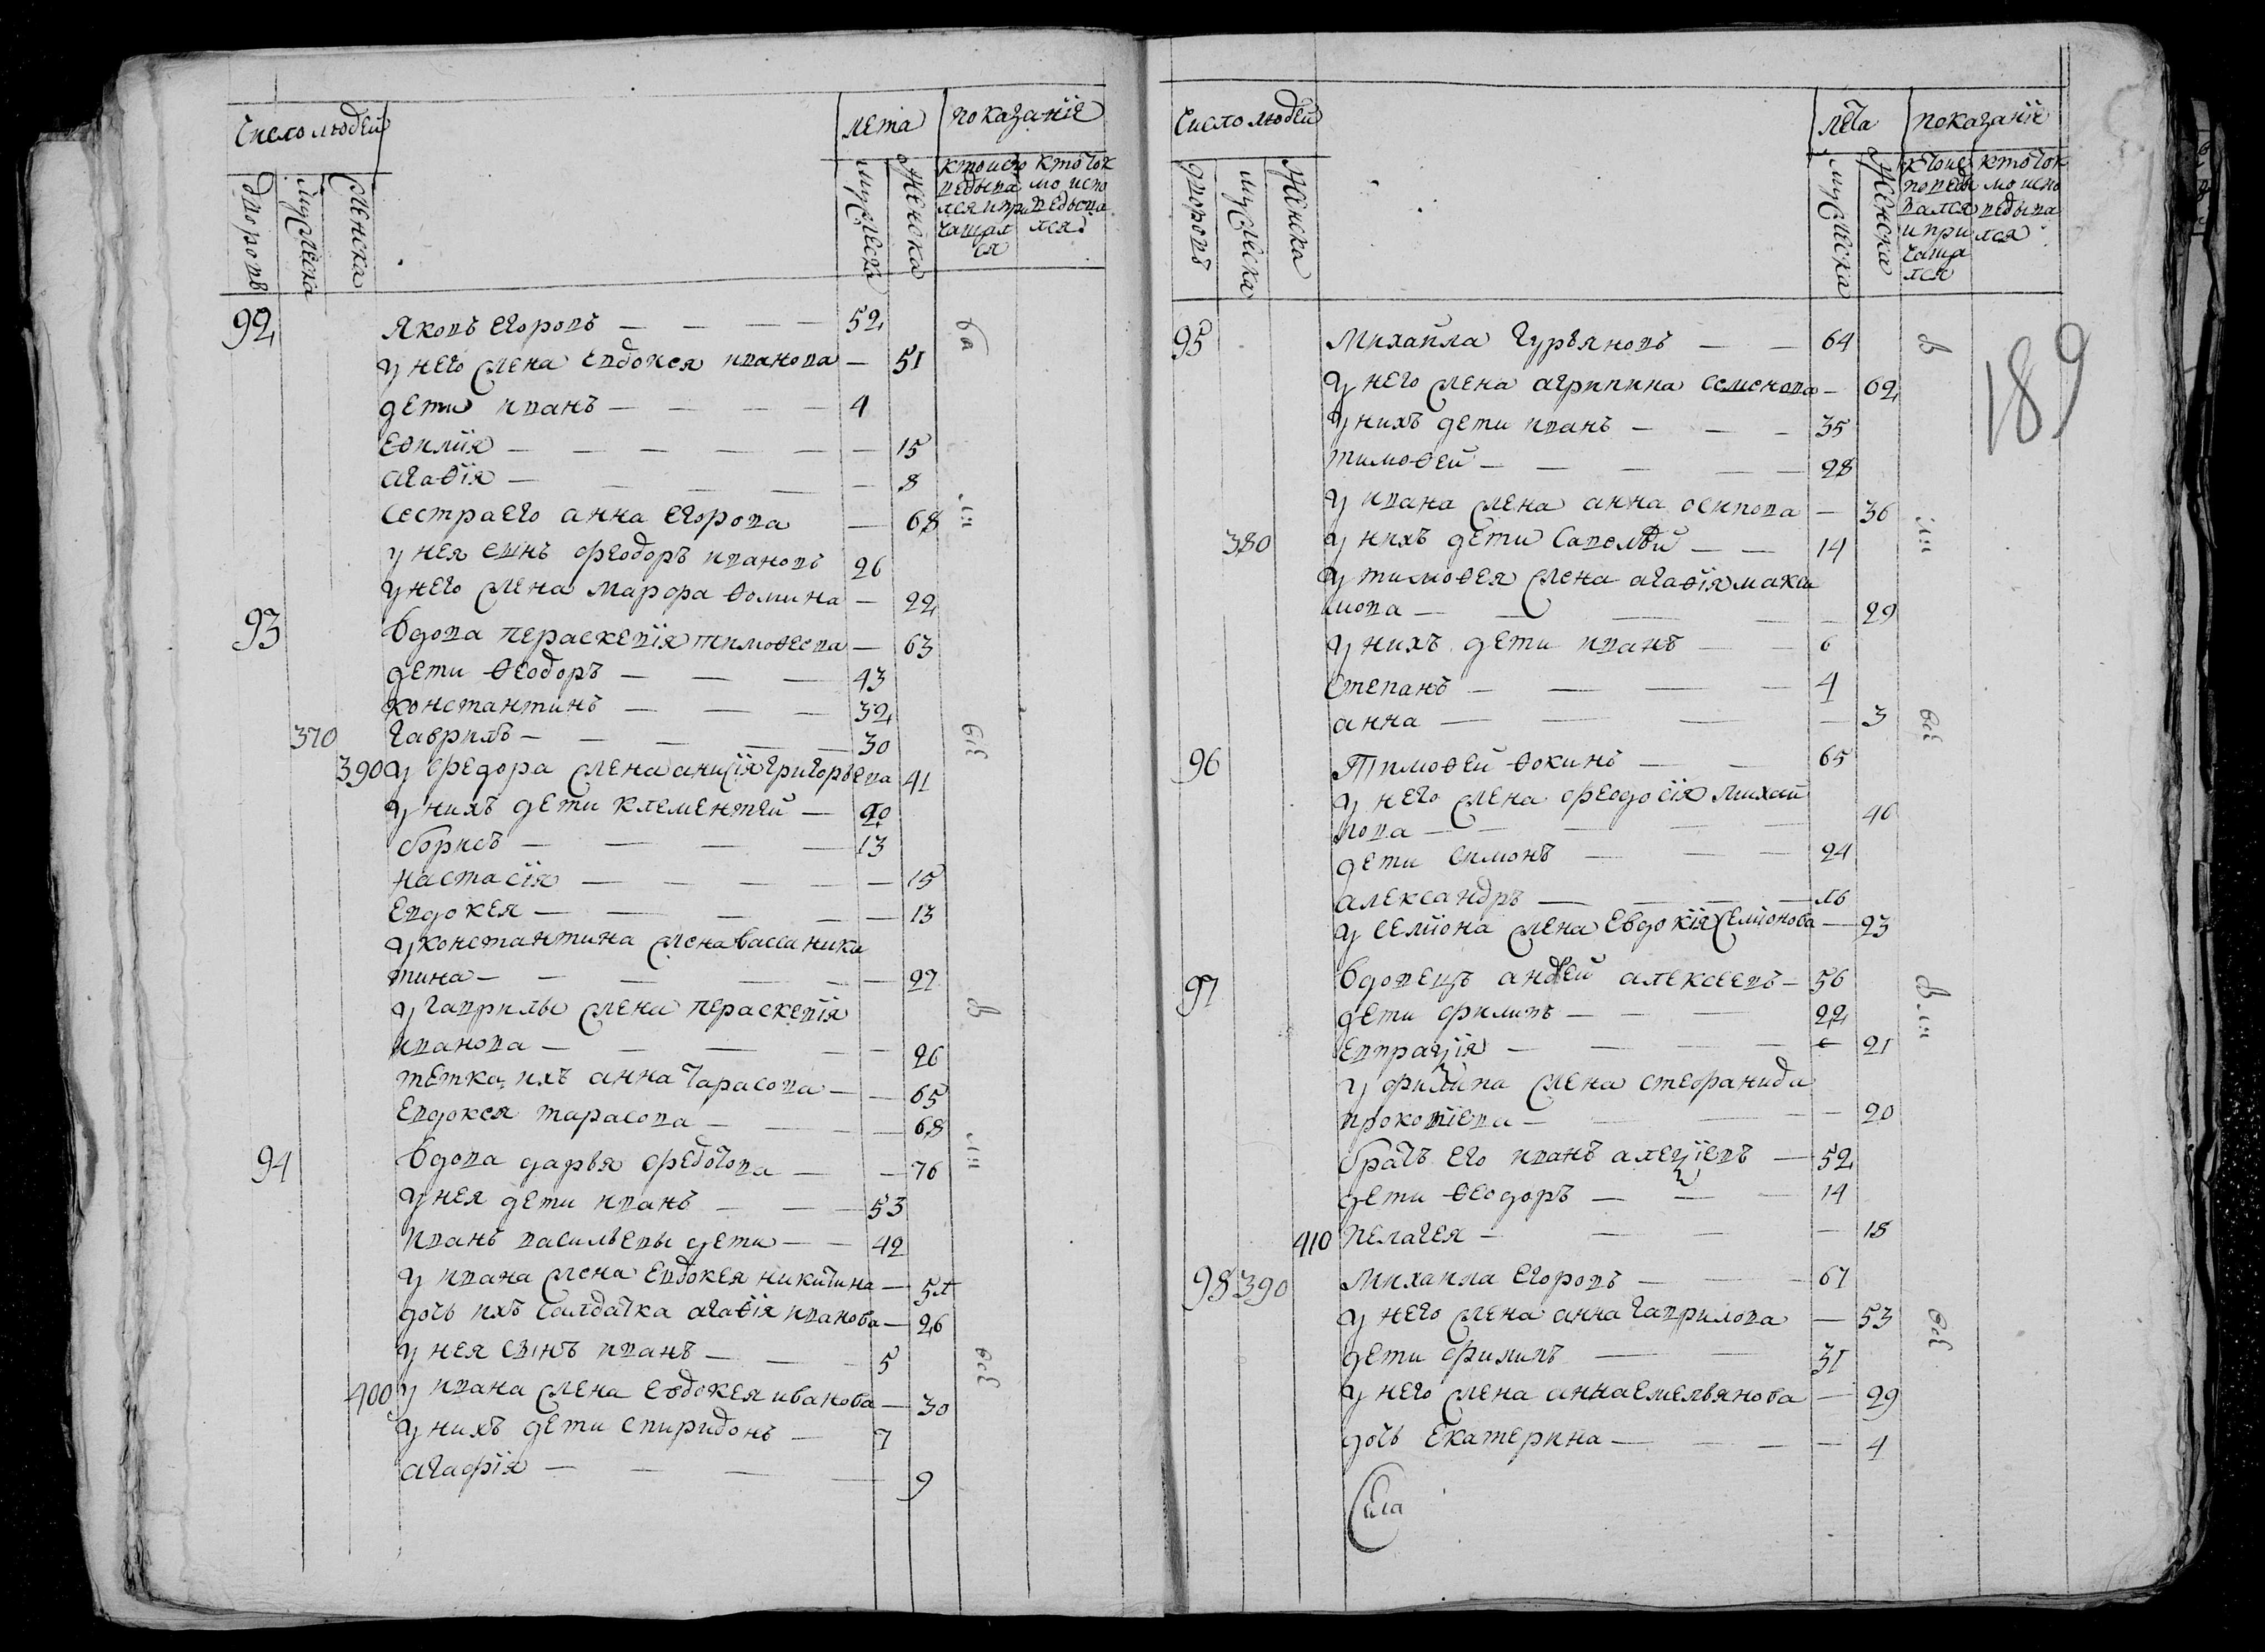 Число людей
лета
показание
дворовъ
мужеска
женска
мужеска
женска
кто испо
ведыва
лся и при
чащал
ся
кто ток
мо испо
ведыва
лся
92 Яковъ Егоровъ — — — — 52
у него жена Евдокея Иванова — 51
дети Иванъ — — — — 4
Еѳимия — — — — — 15
Агаѳїя — — — — — 8
сестра его анна Егорова — 68
у нея сынъ Феодоръ Ивановъ 26
у него жена Марфа Ѳомина — 22
93 Вдова Пераскевїя тимоѳеева — 63
дети Ѳеодоръ — — — 43
Константинъ — — — 32
370 Гаврилъ — — — — — 30
390 у Федора жена анисїя Григорьева 41
у нихъ дети Клементей — 20
Борисъ — — — — 13
Настасїя — — — — — 15
Евдокея — — — — — 13
у Константина жена васса ники
тина — — — — — 27
у Гаврилы жена Пераскевїя
Иванова — — — — — 26
тетка ихъ анна Тарасова — — 65
Евдокея тарасова — — — 68
94 Вдова дарья Федотова — — 76
у нея дети Иванъ — — — 53
Иванъ Васильевы дети — — 42
у Ивана жена Евдокея никитина — 51
дочь ихъ Салдатка агаѳїя Иванова — 26
у нея сынъ Иванъ — — — 5
400 у Ивана жена Евдокея иванова — 30
у нихъ дети Спиридонъ — 7
Агафїя — — — — 9
всѣ
Число людей
лета
показанїе
дворовъ
мужеска
женска
мужеска
женска
кто ис
поведы
вался
и при
чаща
лся
кто ток
мо испо
ведыва
лся
189
95 Михайла Гурьяновъ — — 64
у него жена агрипина Семенова — 62
у нихъ дети Иванъ — — — 35
тимоѳей — — — — — 28
у Ивана жена анна осипова — 36
380 у нихъ дети Савелѣй — — 14
у тимоѳея жена агаѳїя макси
мова — — — — — 29
у нихъ дети Иванъ — — 6
Степанъ — — — — 4
анна — — — — 3
96 Тимоѳей Ѳокинъ — — 65
у него жена феодосїя Михай
лова — — — — — 40
дети Симонъ — — — 24
александръ — — — — 16
у семїона жена Евдокїя Семионова — 23
97 Вдовецъ андрей алексеевъ — 56
дети филипъ — — — 22
Евпраѯїя — — — — 21
у филипа жена стефанида
прокопїева — — — — — 20
братъ его Иванъ алеѯїевъ — 52
дети Ѳеодоръ — — — 14
410 Пелагея — — — — 18
98 390 Михаила Егоровъ — — — 67
у него жена анна Гаврилова — 53
дети Филипъ — — 31
у него жена анна Емельянова — 29
дочь Екатерина — — — — 4
Села